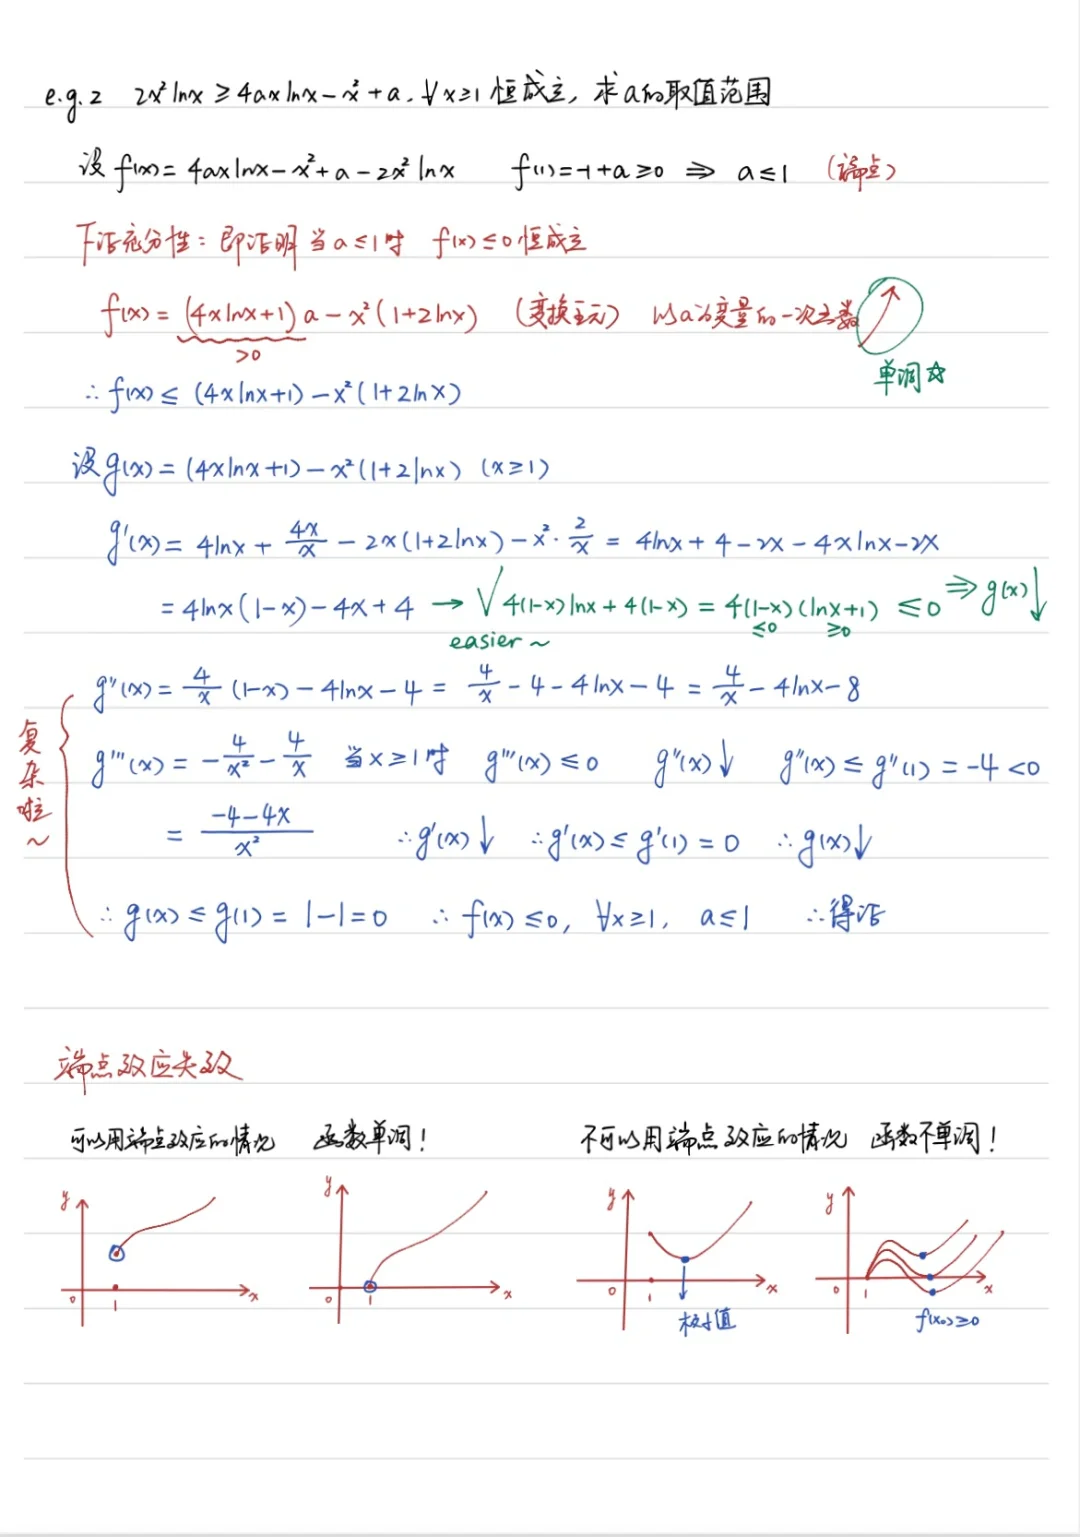 e.g.2 2x²lnx ≥ 4axlnx - x² + a, ∀x≥1 恒成立, 求a的取值范围
设 f(x) = 4axlnx - x² + a - 2x²lnx f(1) = -1 + a ≥ 0 ⇒ a ≤ 1 (端点)
下证充分性: 即证明 当a≤1时 f(x) ≤ 0 恒成立
f(x) = (4xlnx+1)a - x²(1+2lnx) (变换主元) 以a为变量的一次函数
>0
单调☆
∴ f(x) ≤ (4xlnx+1) - x²(1+2lnx)
设 g(x) = (4xlnx+1) - x²(1+2lnx) (x≥1)
g'(x) = 4lnx + 4x/x - 2x(1+2lnx) - x²·2/x = 4lnx + 4 - 2x - 4xlnx - 2x
= 4lnx(1-x) - 4x + 4 → √ 4(1-x)lnx + 4(1-x) = 4(1-x)(lnx+1) ≤ 0 ⇒ g(x)↓
easier ~ ≤0 ≥0
g''(x) = 4/x (1-x) - 4lnx - 4 = 4/x - 4 - 4lnx - 4 = 4/x - 4lnx - 8
复杂啦~
g'''(x) = -4/x² - 4/x 当x≥1时 g'''(x) ≤ 0 g''(x)↓ g''(x) ≤ g''(1) = -4 < 0
= (-4-4x)/x² ∴ g'(x)↓ ∴ g'(x) ≤ g'(1) = 0 ∴ g(x)↓
∴ g(x) ≤ g(1) = 1-1 = 0 ∴ f(x) ≤ 0, ∀x≥1, a≤1 ∴ 得证
端点效应失效
可以用端点效应的情况 函数单调! 不可以用端点效应的情况 函数不单调!
y y y y
0 1 x 0 1 x 0 1 x 0 1 x
极小值 f(x₀)≥0